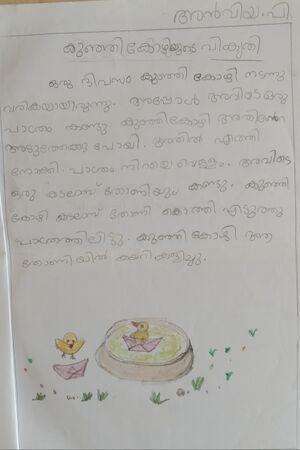 അൻവിയ.പി.
കുഞ്ഞികോഴിയുടെ വികൃതി
ഒരു ദിവസം കുഞ്ഞി കോഴി നടന്നു
വരികയായിരുന്നു. അപ്പോൾ അവിടെ ഒരു
പാത്രം കണ്ടു. കുഞ്ഞികോഴി അതിന്റെ
അടുത്തേക്കു പോയി. എത്തി
നോക്കി. പാത്രം നിറയെ വെള്ളം. അവിടെ
ഒരു കടലാസ് തോണിയും കണ്ടു. കുഞ്ഞി
കോഴി കടലാസ് തോണി കൊത്തി എടുത്തു
പാത്രത്തിലിട്ടു. കുഞ്ഞി കോഴി ആ
തോണിയിൽ കയറി കളിച്ചു.